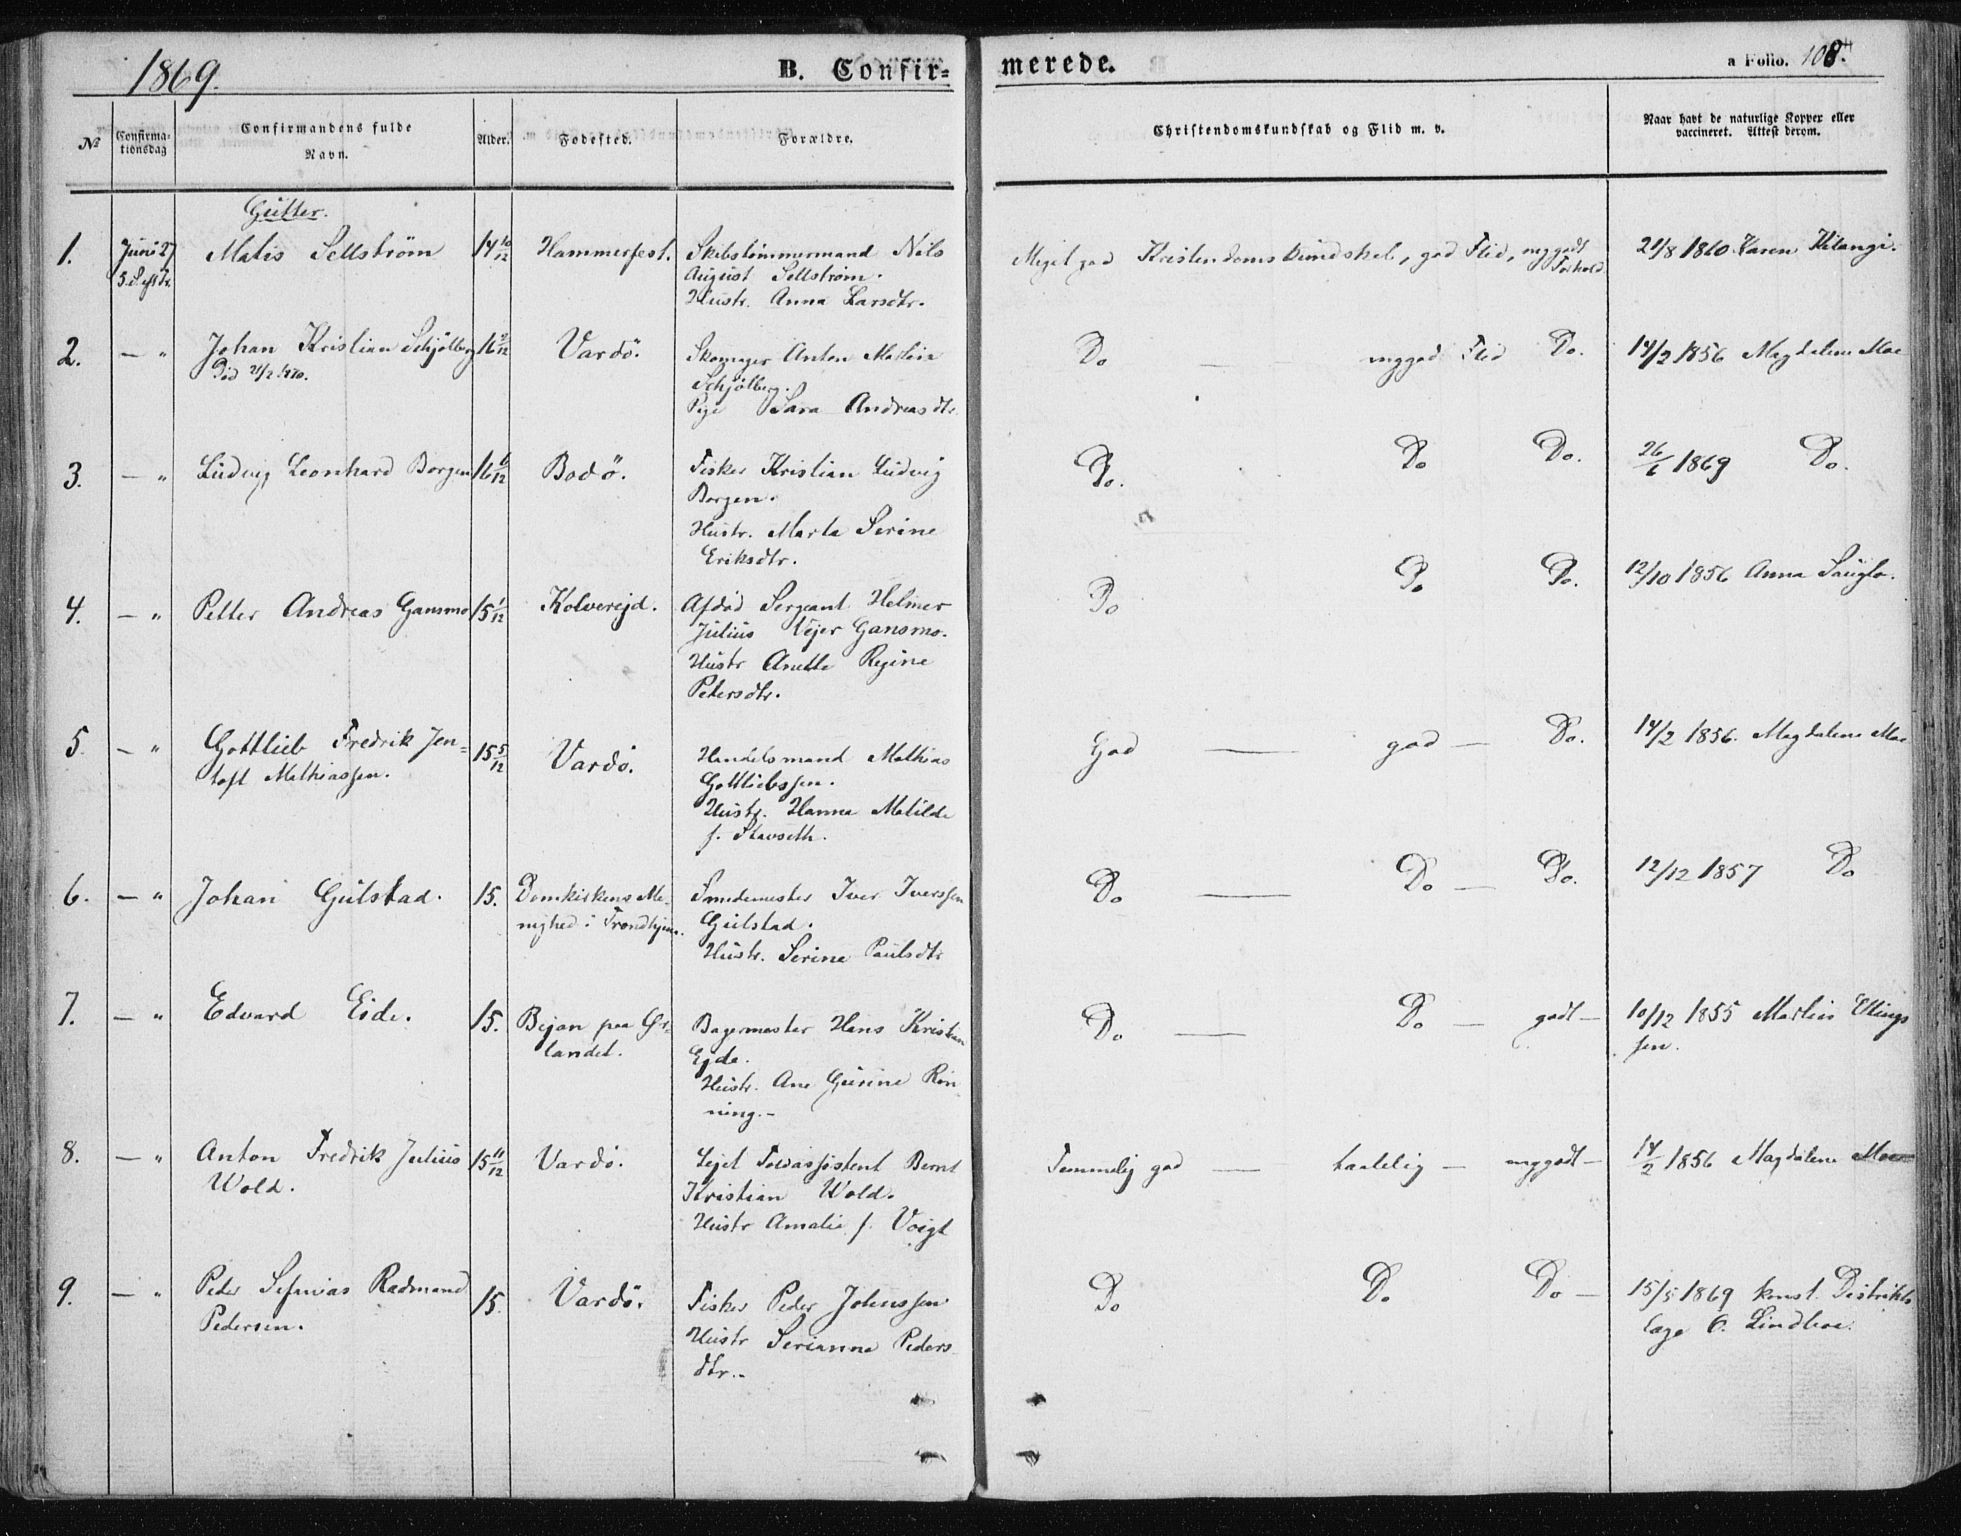 1869.
B. Confir=
merede.
a Folio. 108.
No
Confirma-
tionsdag
Confirmandens fulde
Navn.
Alder.
Fødested.
Forældre.
Christendomskundskab og Flid m. v.
Naar havt de naturlige Kopper eller
vaccineret. Attest derom.
Gutter.
1. Juni 27 Matis Sellstrøm 14 10/12 Hammerfest. Skibstømmermand Nils
August Sellstrøm.
Hustr. Anna Larsdtr.
Meget god Kristendomskundskab, god Flid, meg godt
Forhold
21/8 1860 Karen Kitangi.
2. — " Johan Kristian Schjølberg 16 /12 Vardö. Skomager Anton Martin
Død 21/2 1870.
Schjølberg.
Pige Sara Andreasdtr.
Do — meggod Flid Do. 14/2 1856 Magdalene Moe
3. — " Ludvig Leonhard Borgen 16 6/12 Bodö. Fisker Kristian Ludvig
Borgen.
Hustr. Marta Serine
Eriksdtr.
Do. Do Do. 26/6 1869 Do.
4. — " Petter Andreas Gansmo 15 1/12 Kolvereid. Afdød Sergeant Helmer
Julius Vejer Gansmo.
Hustr Anette Regine
Petersdtr.
Do Do Do. 12/10 1856 Anna
5. — " Gottlieb Fredrik Jen=
toft Mathiassen.
15 5/12 Vardö. Handelsmand Mathias
Gottliebssen.
Hustr. Hanna Matilde
f. Stavseth.
God — god — Do. 14/2 1856. Magdalene Moe
6. — " Johan Gulstad. 15. Domkirkens Me-
nighed i Trondhjem.
Smedemester Iver Iverssen
Gulstad.
Hustr. Serine Paulsdtr
Do — Do — Do. 12/12 1857 Do
7. — " Edvard Eide. 15. Bejan paa Ør-
landet.
Bagermester Hans Kristian
Ejde.
Hustr. Ane Gurine Røn-
ning.-
Do — Do — godt — 10/12 1855 Martin Ellings
sen.
8. — " Anton Fredrik Julius
Wold.
15 11/12 Vardö. Lejet Toldassistent Bernt
Kristian Wold.
Hustr Amalie f. Voigt
Temmelig god — taalelig — meggodt — 14/2 1856 Magdalene Moe
9. — " Peder Radmand
Pedersen.
15. Vardö. Fisker Peder Johnssen
Hustr Serianna Peders-
dtr..
Do Do Do — 15/5 1869 konst. Distrikts
læge C. Lindboe.